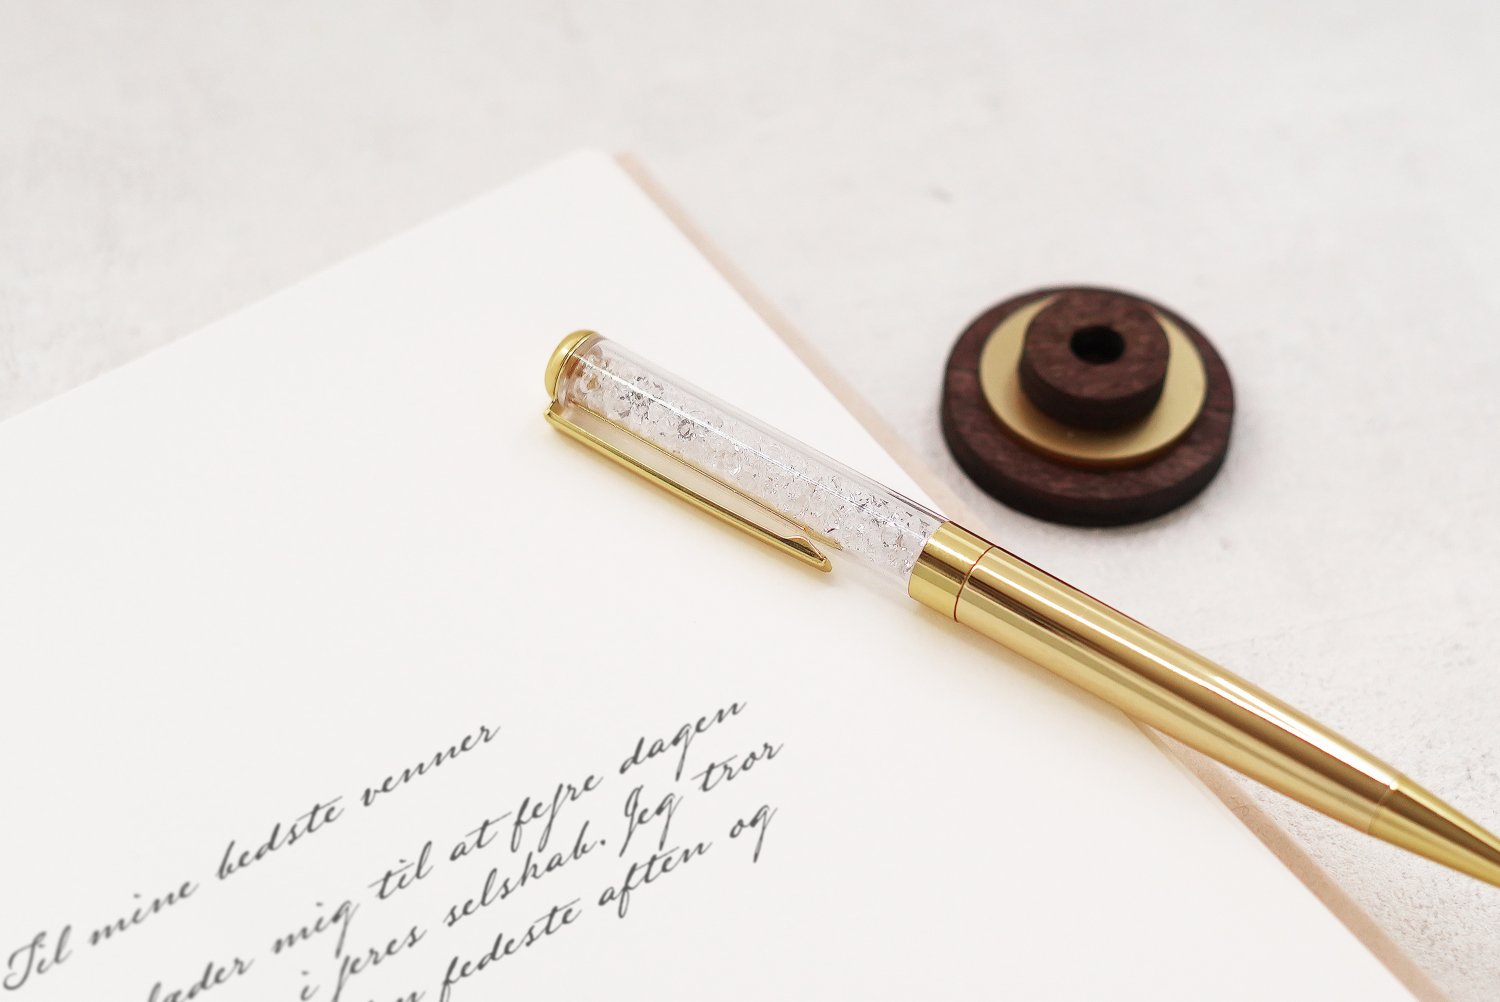 Til mine bedste venner
læder mig til at fejre dagen
i jeres selskab. Jeg tror
fedeste aften og